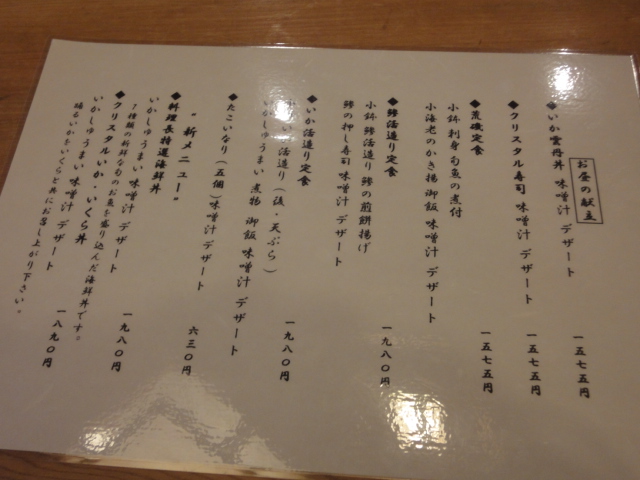 お昼の献立
◆いか雲丹丼 味噌汁 デザート 一五七五円
◆クリスタル寿司 味噌汁 デザート 一五七五円
◆荒磯定食 一五七五円
小鉢 刺身 旬魚の煮付
小海老のかき揚 御飯 味噌汁 デザート
◆鯵活造り定食 一八九〇円
小鉢 鯵活造り 鯵の煎餅揚げ
鯵の押し寿司 味噌汁 デザート
◆いか活造り定食 一九八〇円
いか活造り（後・天ぷら）
いかしゅうまい 煮物 御飯 味噌汁 デザート
◆たこいなり（五個）味噌汁 デザート 六三〇円
〝新メニュー〟
◆料理長特選海鮮丼 一九八〇円
いかしゅうまい 味噌汁 デザート
７種類の新鮮な旬のお魚を盛り込んだ海鮮丼です。
◆クリスタルいか・いくら丼 一八九〇円
いかしゅうまい 味噌汁 デザート
踊るいかをいくらと共にお召し上がり下さい。